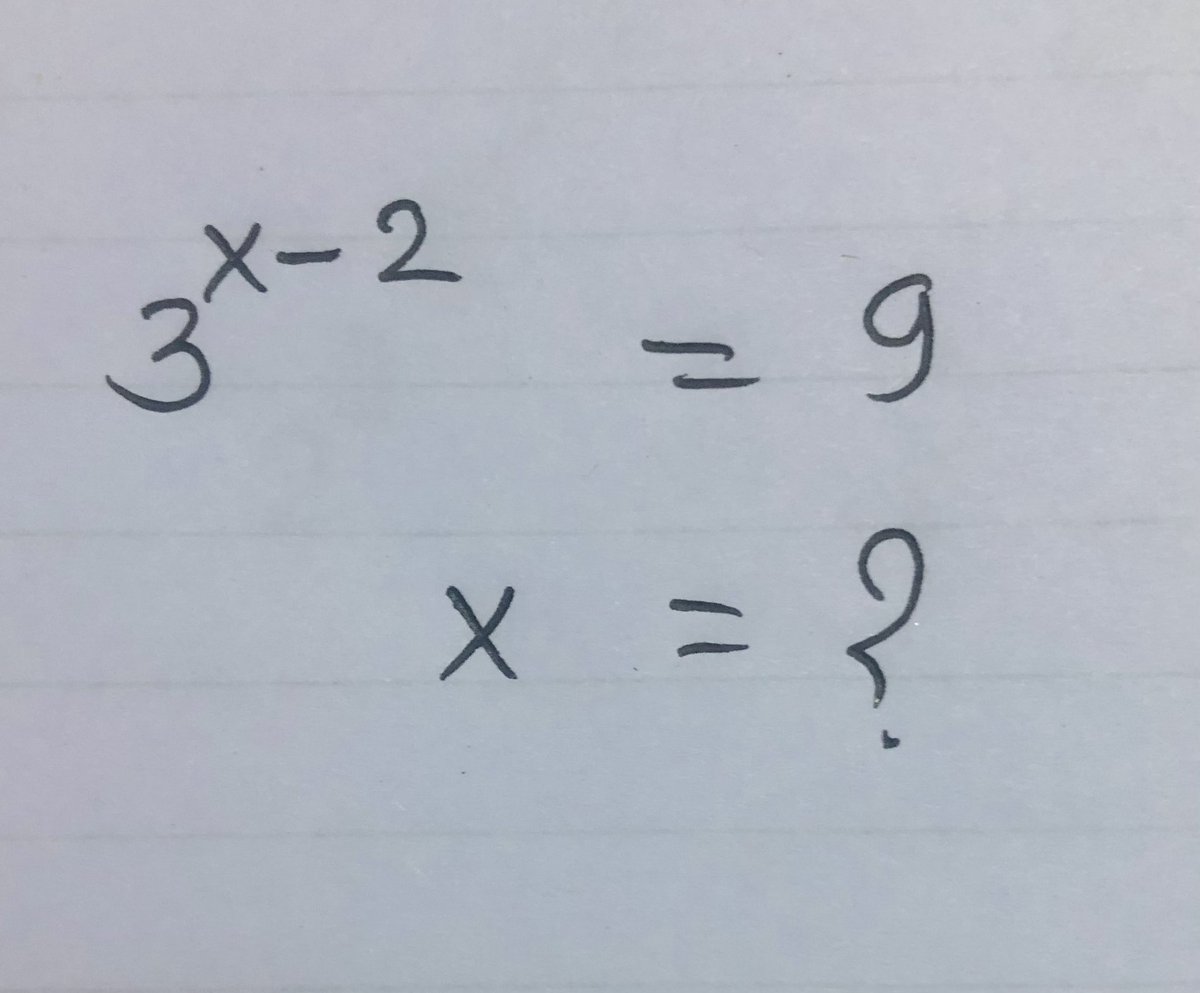 3^{x-2} = 9
x = ?